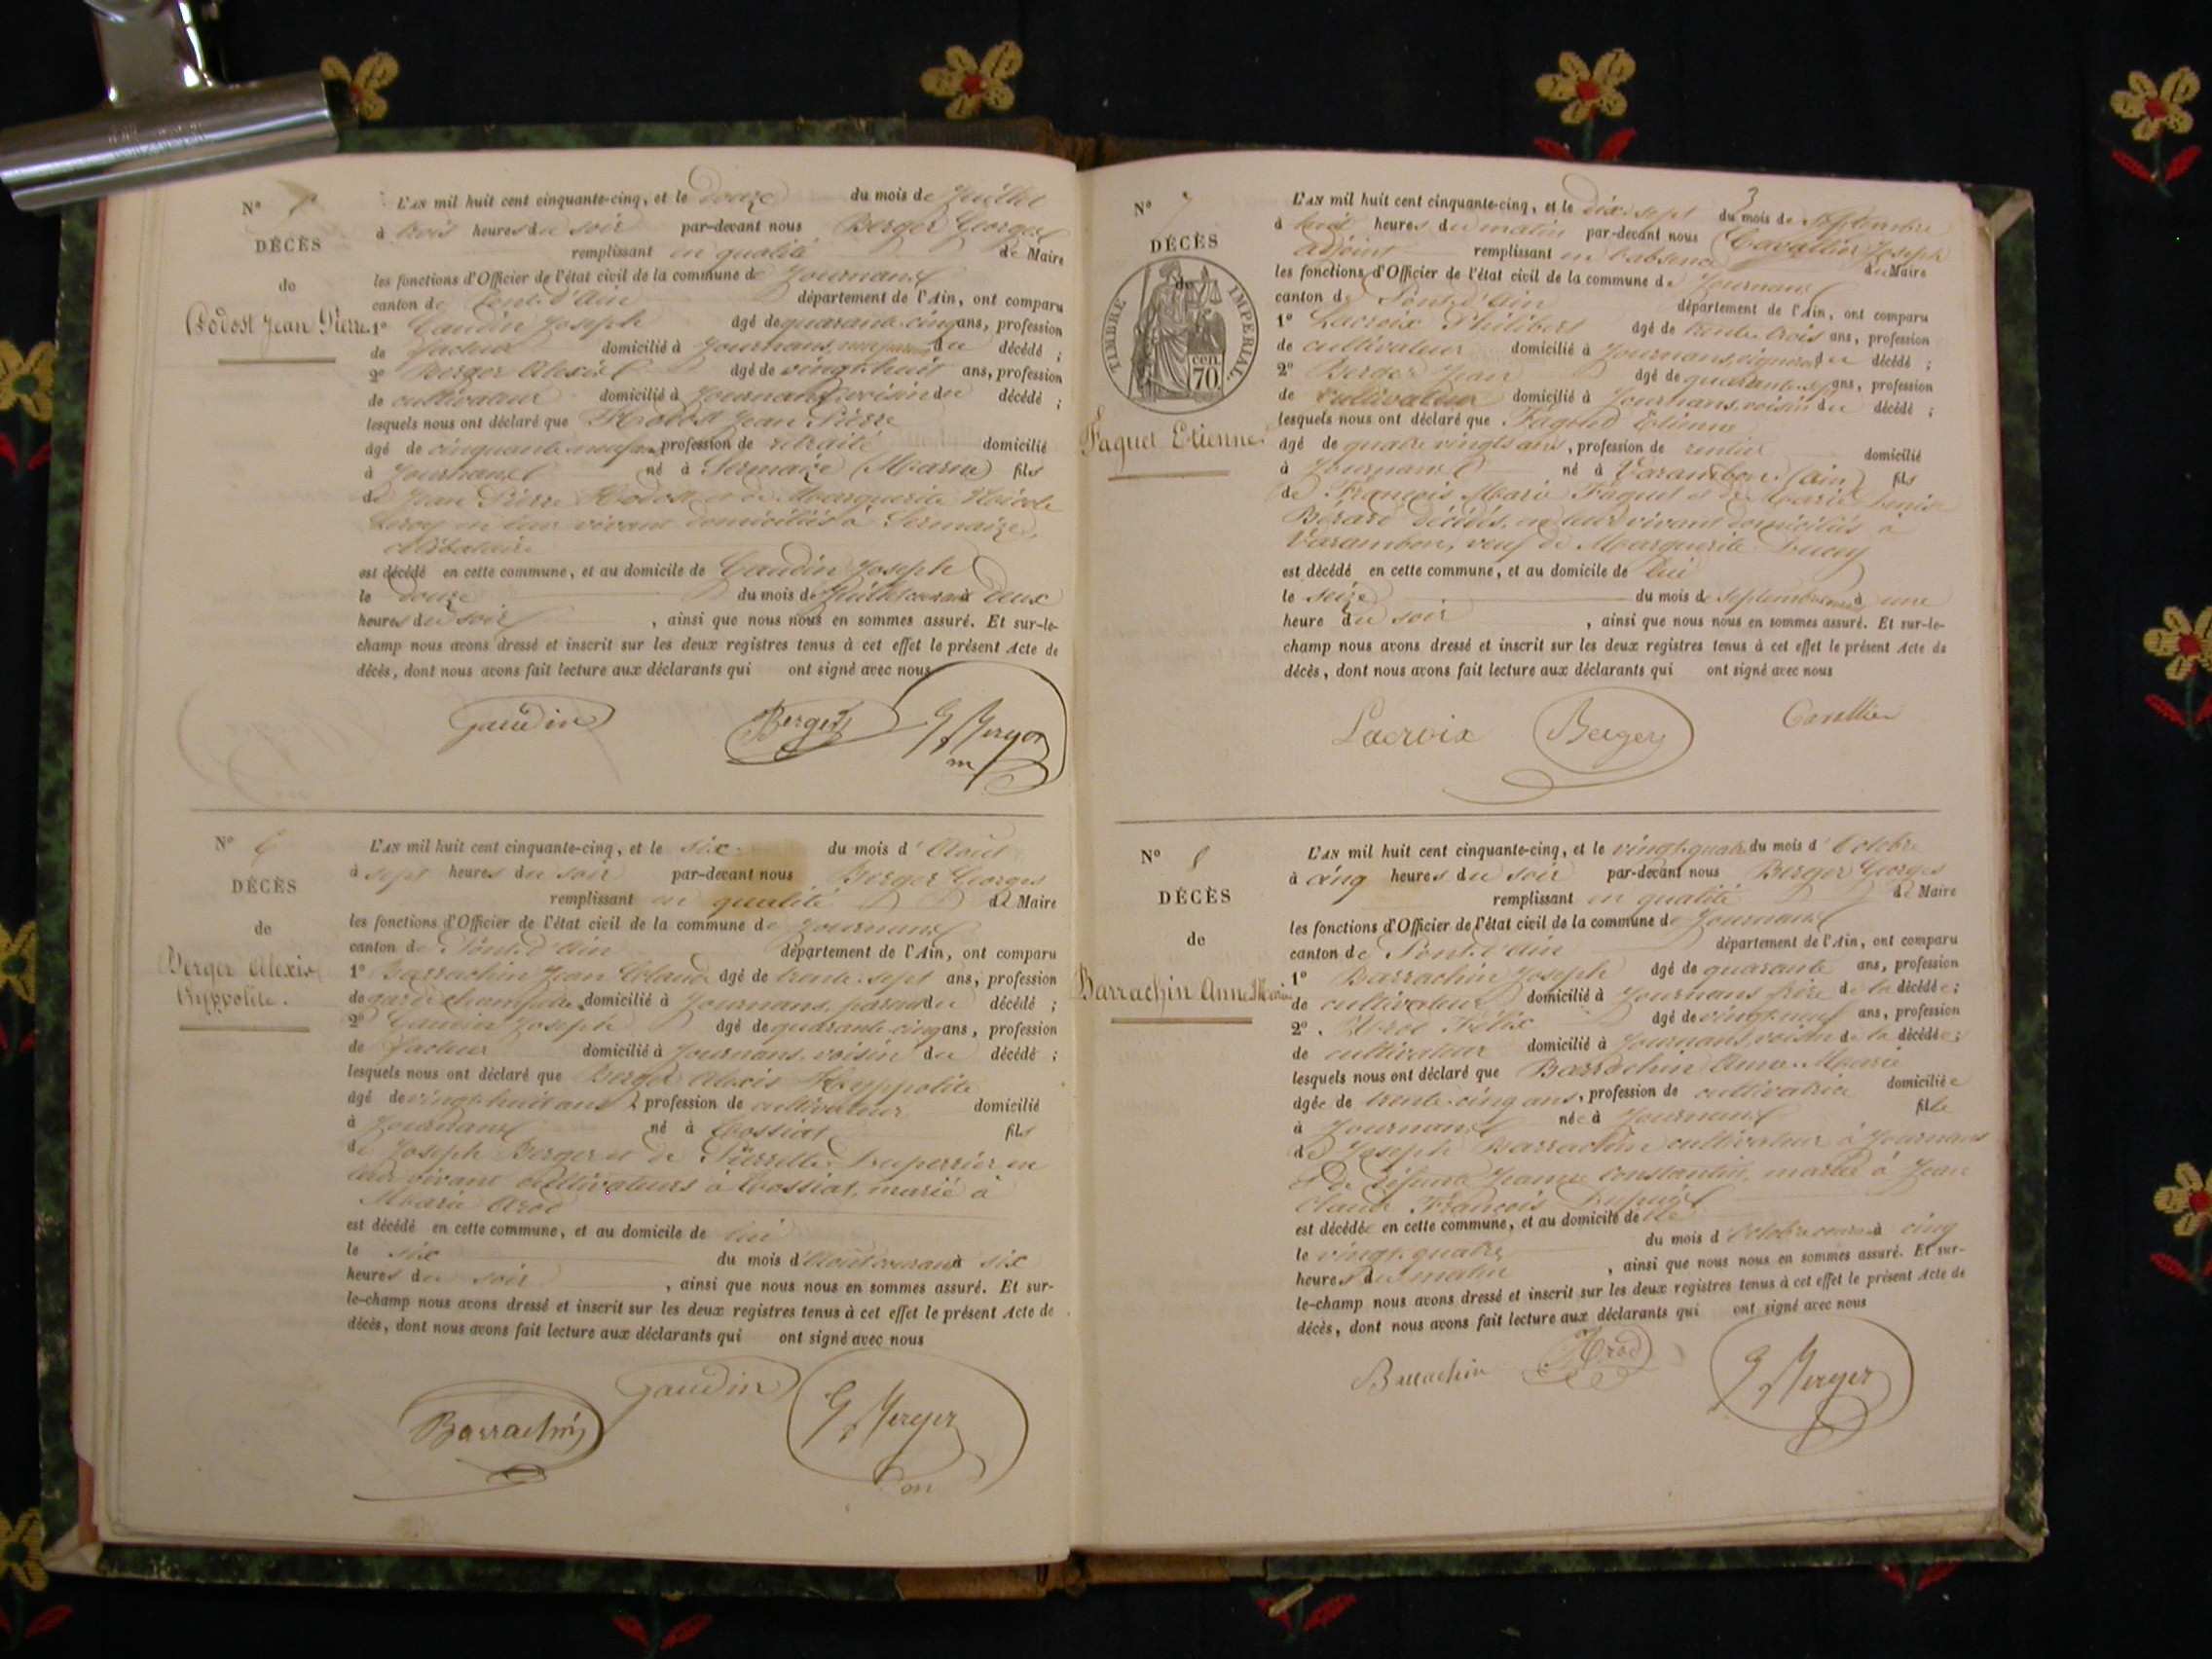 N°
DÉCÈS
de
Jean Pierre
L'AN mil huit cent cinquante-cinq, et le douze du mois de Juillet
à trois heures du soir par-devant nous Berger Georges
remplissant en qualité de Maire
les fonctions d'Officier de l'état civil de la commune de Journans
canton de Pont-d'Ain département de l'Ain, ont comparu
1° Gaudin Joseph âgé de quarante-cinq ans, profession
de facteur domicilié à Journans, du décédé ;
2° Berger Alexis âgé de vingt-huit ans, profession
de cultivateur domicilié à Journans, voisin du décédé ;
lesquels nous ont déclaré que Jean Pierre
âgé de cinquante-neuf ans profession de retraité domicilié
à Journans né à Sermaize (Marne) fils
de Jean Pierre et de Marguerite Nicole
Leroy en leur vivant domiciliés à Sermaize,
célibataire
est décédé en cette commune, et au domicile de Gaudin Joseph
le douze du mois de Juillet courant à deux
heures du soir , ainsi que nous nous en sommes assuré. Et sur-le-
champ nous avons dressé et inscrit sur les deux registres tenus à cet effet le présent Acte de
décès, dont nous avons fait lecture aux déclarants qui ont signé avec nous
Gaudin Berger G Berger
m
N° 6
DÉCÈS
de
Berger Alexis
Hyppolite.
L'AN mil huit cent cinquante-cinq, et le six du mois d'Août
à sept heures du soir par-devant nous Berger Georges
remplissant en qualité de Maire
les fonctions d'Officier de l'état civil de la commune de Journans
canton de Pont-d'Ain département de l'Ain, ont comparu
1° Barrachin Jean Claude âgé de trente-sept ans, profession
de garde champêtre domicilié à Journans, parent du décédé ;
2° Gaudin Joseph âgé de quarante-cinq ans, profession
de facteur domicilié à Journans, voisin du décédé ;
lesquels nous ont déclaré que Berger Alexis Hyppolite
âgé de vingt-huit ans profession de cultivateur domicilié
à Journans né à Tossiat fils
de Joseph Berger et de Pierrette Duperrier en
leur vivant cultivateurs à Tossiat, marié à
Marie Arod
est décédé en cette commune, et au domicile de lui
le six du mois d'Août courant à six
heures du soir , ainsi que nous nous en sommes assuré. Et sur-
le-champ nous avons dressé et inscrit sur les deux registres tenus à cet effet le présent Acte de
décès, dont nous avons fait lecture aux déclarants qui ont signé avec nous
Barrachin Gaudin G Berger
m
3
N° 7
DÉCÈS
de
TIMBRE IMPERIAL.
cen.
70
Faguet Etienne
L'AN mil huit cent cinquante-cinq, et le dix-sept du mois de Septembre
à huit heures du matin par-devant nous Cavallier Joseph
adjoint remplissant en l'absence du Maire
les fonctions d'Officier de l'état civil de la commune de Journans
canton de Pont-d'Ain département de l'Ain, ont comparu
1° Lacroix Philibert âgé de trente-trois ans, profession
de cultivateur domicilié à Journans, du décédé ;
2° Berger Jean âgé de quarante-sept ans, profession
de cultivateur domicilié à Journans, voisin du décédé ;
lesquels nous ont déclaré que Faguet Etienne
âgé de quatre vingts ans, profession de rentier domicilié
à Journans né à Varambon (Ain) fils
de François Marie Faguet et de Marie Denise
Bérard décédés, en leur vivant domiciliés à
Varambon, veuf de Marguerite Ducey
est décédé en cette commune, et au domicile de lui
le seize du mois de Septembre courant à une
heure du soir , ainsi que nous nous en sommes assuré. Et sur-le-
champ nous avons dressé et inscrit sur les deux registres tenus à cet effet le présent Acte de
décès, dont nous avons fait lecture aux déclarants qui ont signé avec nous
Lacroix Berger
N° 8
DÉCÈS
de
Barrachin Anne Marie
L'AN mil huit cent cinquante-cinq, et le vingt-quatre du mois d'Octobre
à cinq heures du soir par-devant nous Berger Georges
remplissant en qualité de Maire
les fonctions d'Officier de l'état civil de la commune de Journans
canton de Pont-d'Ain département de l'Ain, ont comparu
1° Barrachin Joseph âgé de quarante ans, profession
de cultivateur domicilié à Journans frère de la décédée ;
2° Arod Félix âgé de vingt-neuf ans, profession
de cultivateur domicilié à Journans, voisin de la décédée ;
lesquels nous ont déclaré que Barrachin Anne-Marie
âgée de trente-cinq ans, profession de cultivatrice domiciliée
à Journans née à Journans fille
de Joseph Barrachin cultivateur à Journans
et de défunte Jeanne Constantin, mariée à Jean
Claude François Dupuis
est décédée en cette commune, et au domicile de
le vingt-quatre du mois d'Octobre courant à cinq
heures du matin , ainsi que nous nous en sommes assuré. Et sur-
le-champ nous avons dressé et inscrit sur les deux registres tenus à cet effet le présent Acte de
décès, dont nous avons fait lecture aux déclarants qui ont signé avec nous
Barrachin Arod G Berger